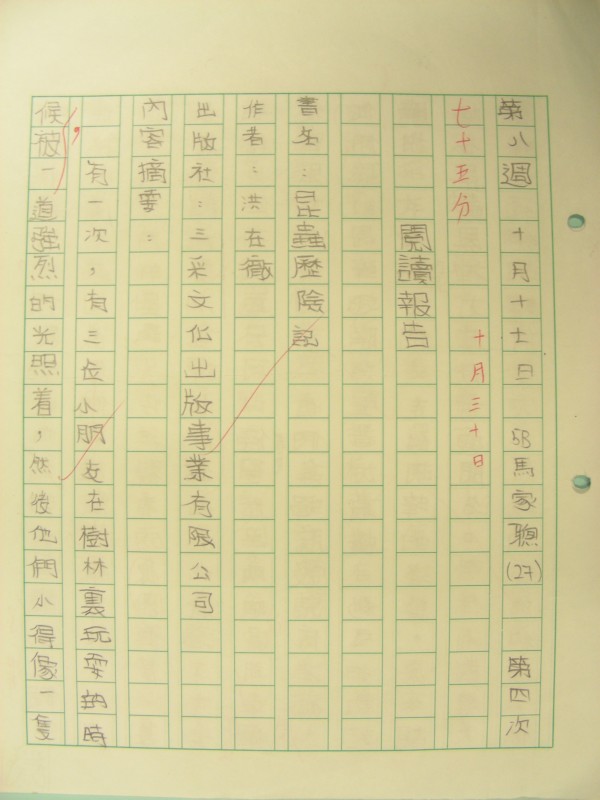 第八週 十月十七日 5B馬家聰(27) 第四次
七十五分 十月三十日
閱讀報告
書名：昆蟲歷險記
作者：洪在徹
出版社：三采文化出版事業有限公司
內容摘要：
有一次，有三位小朋友在樹林裏玩耍的時
候，被一道強烈的光照着，然後他們小得像一隻